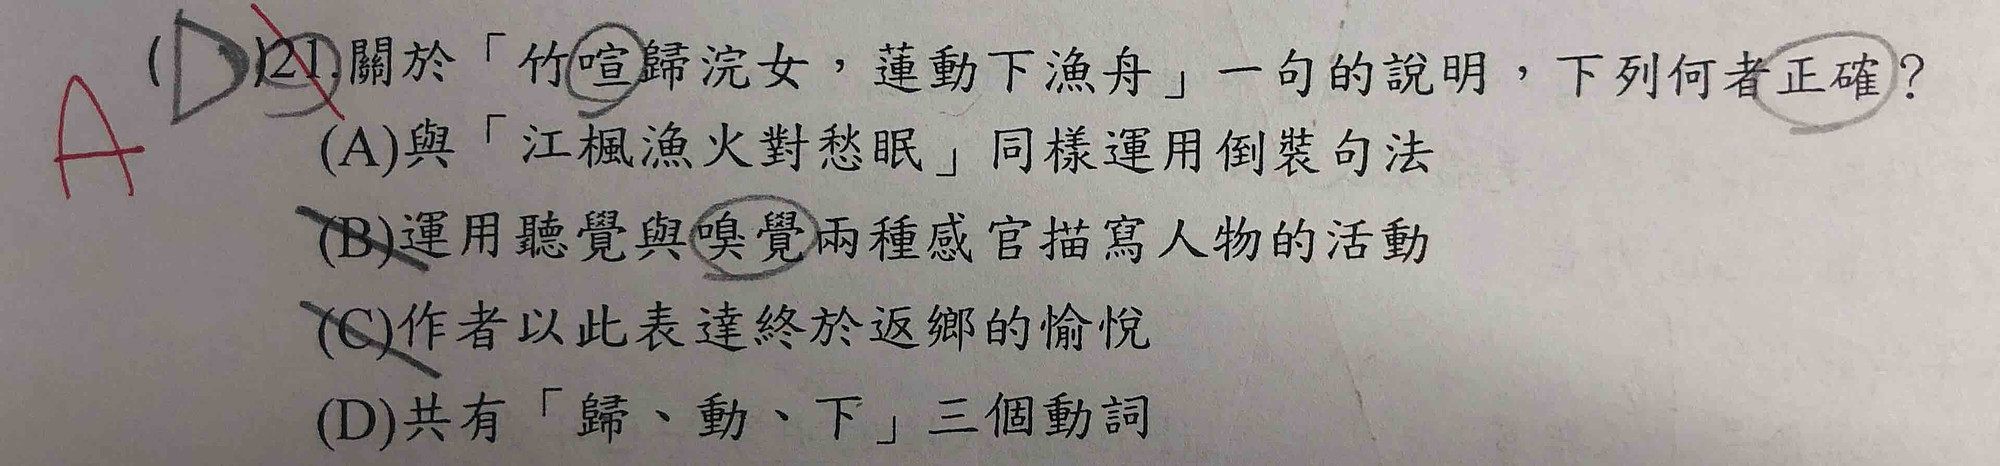 (D)21.關於「竹喧歸浣女，蓮動下漁舟」一句的說明，下列何者正確？
A
(A)與「江楓漁火對愁眠」同樣運用倒裝句法
(B)運用聽覺與嗅覺兩種感官描寫人物的活動
(C)作者以此表達終於返鄉的愉悅
(D)共有「歸、動、下」三個動詞